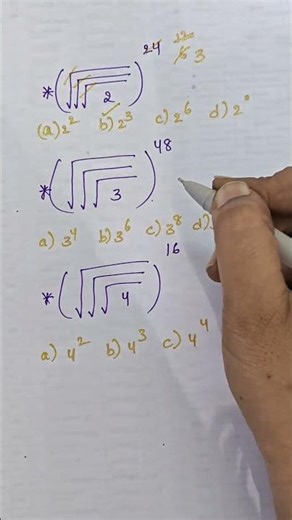 *(√√√2)^24 12 6 3
(a) 2^2 b) 2^3 c) 2^6 d) 2^0
*(√√√3)^48
a) 3^4 b) 3^6 c) 3^8 d)
*(√√√4)^16
a) 4^2 b) 4^3 c) 4^4